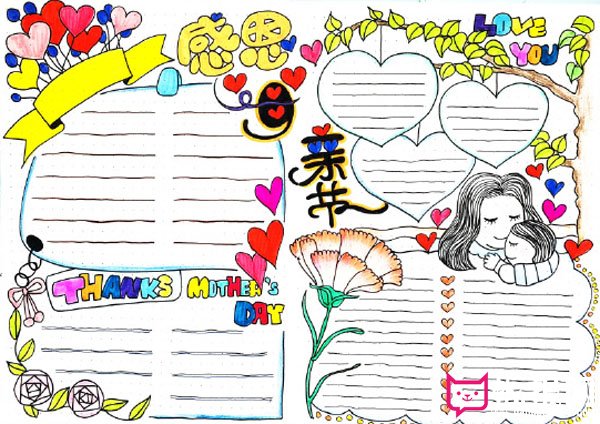 感恩
LOVE
YOU
母亲节
THANKS MOTHER'S
DAY